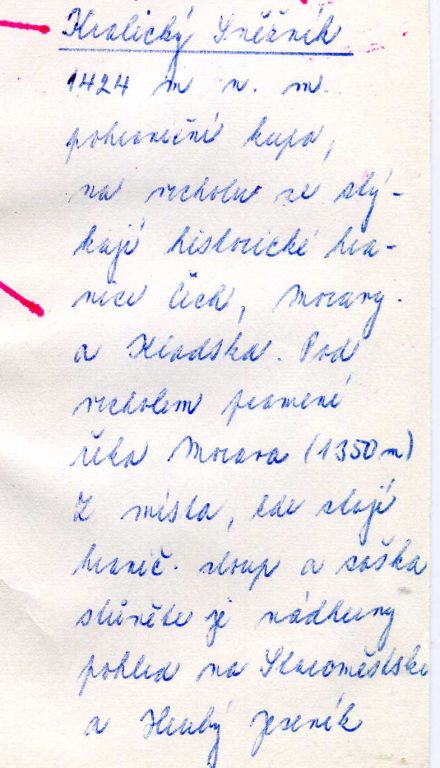 Kralický Sněžník
1424 m n. m.
pohraniční kupa,
na vrcholu se stý-
kají historické hra-
nice Čech, Moravy
a Kladska. Pod
vrcholem pramení
řeka Morava (1350 m)
Z místa, kde stojí
hranič. sloup a soška
slůněte je nádherný
pohled na Staroměstské
a Hrubý Jeseník